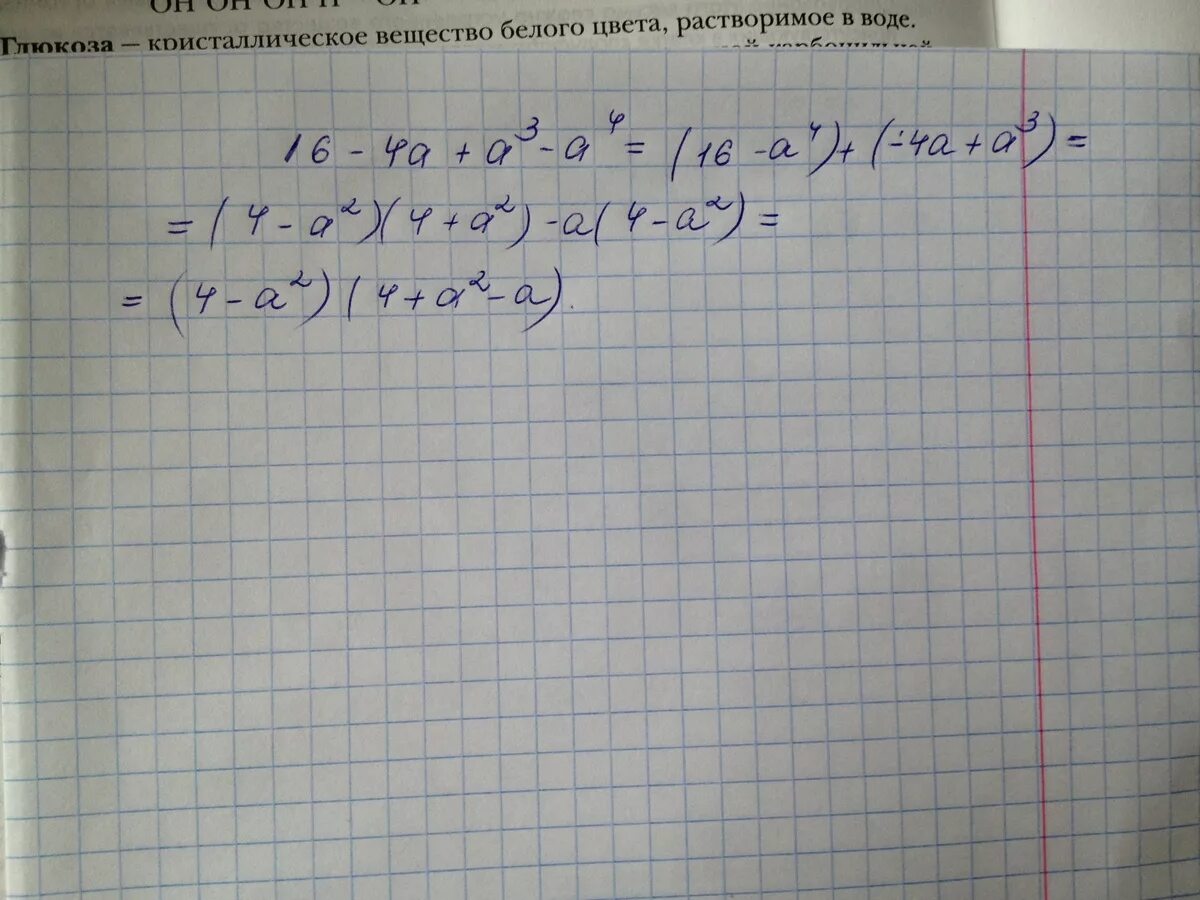 Глюкоза – кристаллическое вещество белого цвета, растворимое в воде.
16 - 4a + a³ - a⁴ = (16 - a⁴) + (-4a + a³) =
= (4 - a²)(4 + a²) - a(4 - a²) =
= (4 - a²)(4 + a² - a).